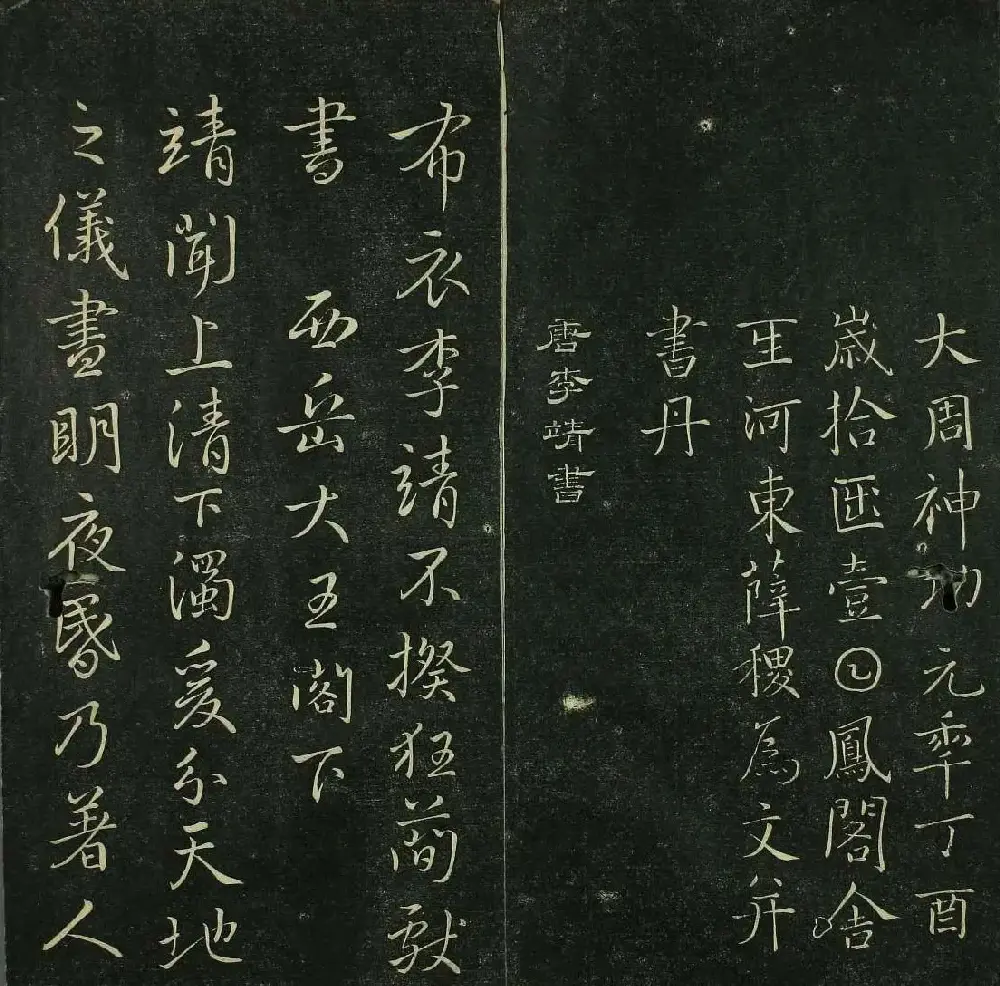 大周神功元𠡦丁酉
歲拾𠥱壹𡆠鳳閣舍
𤯔河東薛稷為文并
書丹
唐李靖書
布衣李靖不揆狂簡獻
書 西岳大王閣下
靖聞上清下濁爰分天地
之儀晝明夜昬乃著人